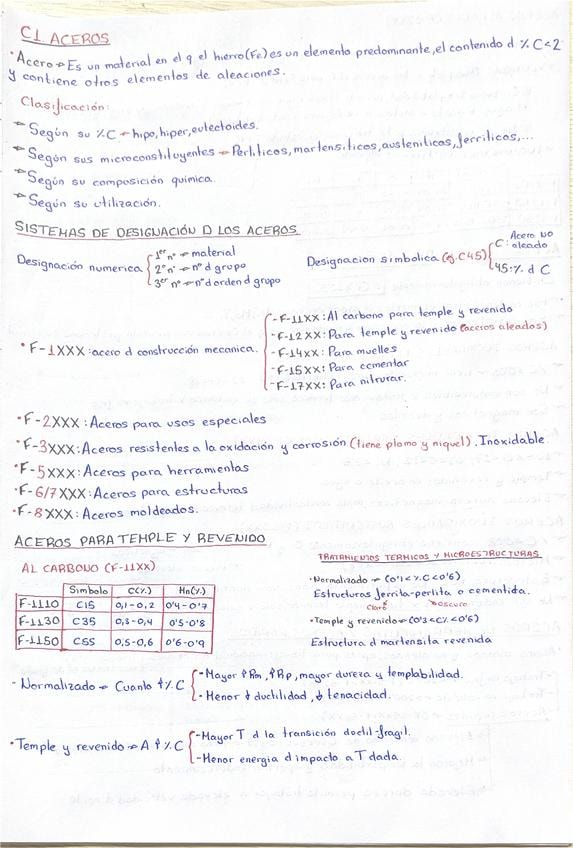 C1 ACEROS
• Acero → Es un material en el q el hierro (Fe) es un elemento predominante, el contenido d % C<2
y contiene otros elementos de aleaciones.
Clasificación:
→ Según su % C → hipo, hiper, eutectoides.
→ Según sus microconstituyentes → Perlíticos, martensíticos, austeníticos, ferríticos,...
→ Según su composición química.
→ Según su utilización.
SISTEMAS DE DESIGNACIÓN D LOS ACEROS
Designación numerica
1er nº → material
2º nº → nº d grupo
3er nº → nº d orden d grupo
Designacion simbolica (ej. C45)
C: Acero NO
aleado
45: % d C
• F-1XXX: acero d construcción mecanica.
- F-11XX: Al carbono para temple y revenido
- F-12XX: Para temple y revenido (aceros aleados)
- F-14XX: Para muelles
- F-15XX: Para cementar
- F-17XX: Para nitrurar.
• F-2XXX: Aceros para usos especiales
• F-3XXX: Aceros resistentes a la oxidación y corrosión (tiene plomo y niquel). Inoxidable.
• F-5XXX: Aceros para herramientas
• F-6/7XXX: Aceros para estructuras
• F-8XXX: Aceros moldeados.
ACEROS PARA TEMPLE Y REVENIDO
AL CARBONO (F-11XX)
Simbolo C(%) Mn(%)
F-1110 C15 0,1-0,2 0'4-0'7
F-1130 C35 0,3-0,4 0'5-0'8
F-1150 C55 0,5-0,6 0'6-0'9
TRATAMIENTOS TERMICOS Y MICROESTRUCTURAS
• Normalizado → (0'1<%C<0'6)
Estructuras ferrita-perlita o cementida.
Claro oscuro
• Temple y revenido → (0'3<C%<0'6)
Estructura d martensita revenida
- Normalizado → Cuanto ↑ % C
- Mayor ↑ Rm, ↑ Rp, mayor dureza y templabilidad.
- Menor ↓ ductilidad, ↓ tenacidad.
• Temple y revenido → A ↑ % C
- Mayor T d la transición ductil-fragil.
- Menor energia d impacto a T dada.